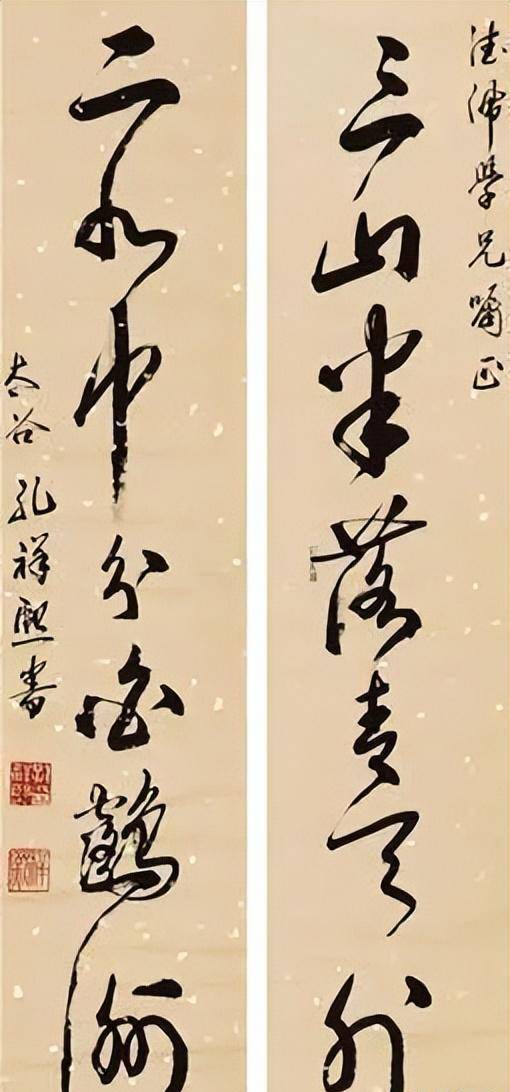 德沛學兄囑正
三山半落青天外
二水中分白鶴洲
太谷孔祥熙書